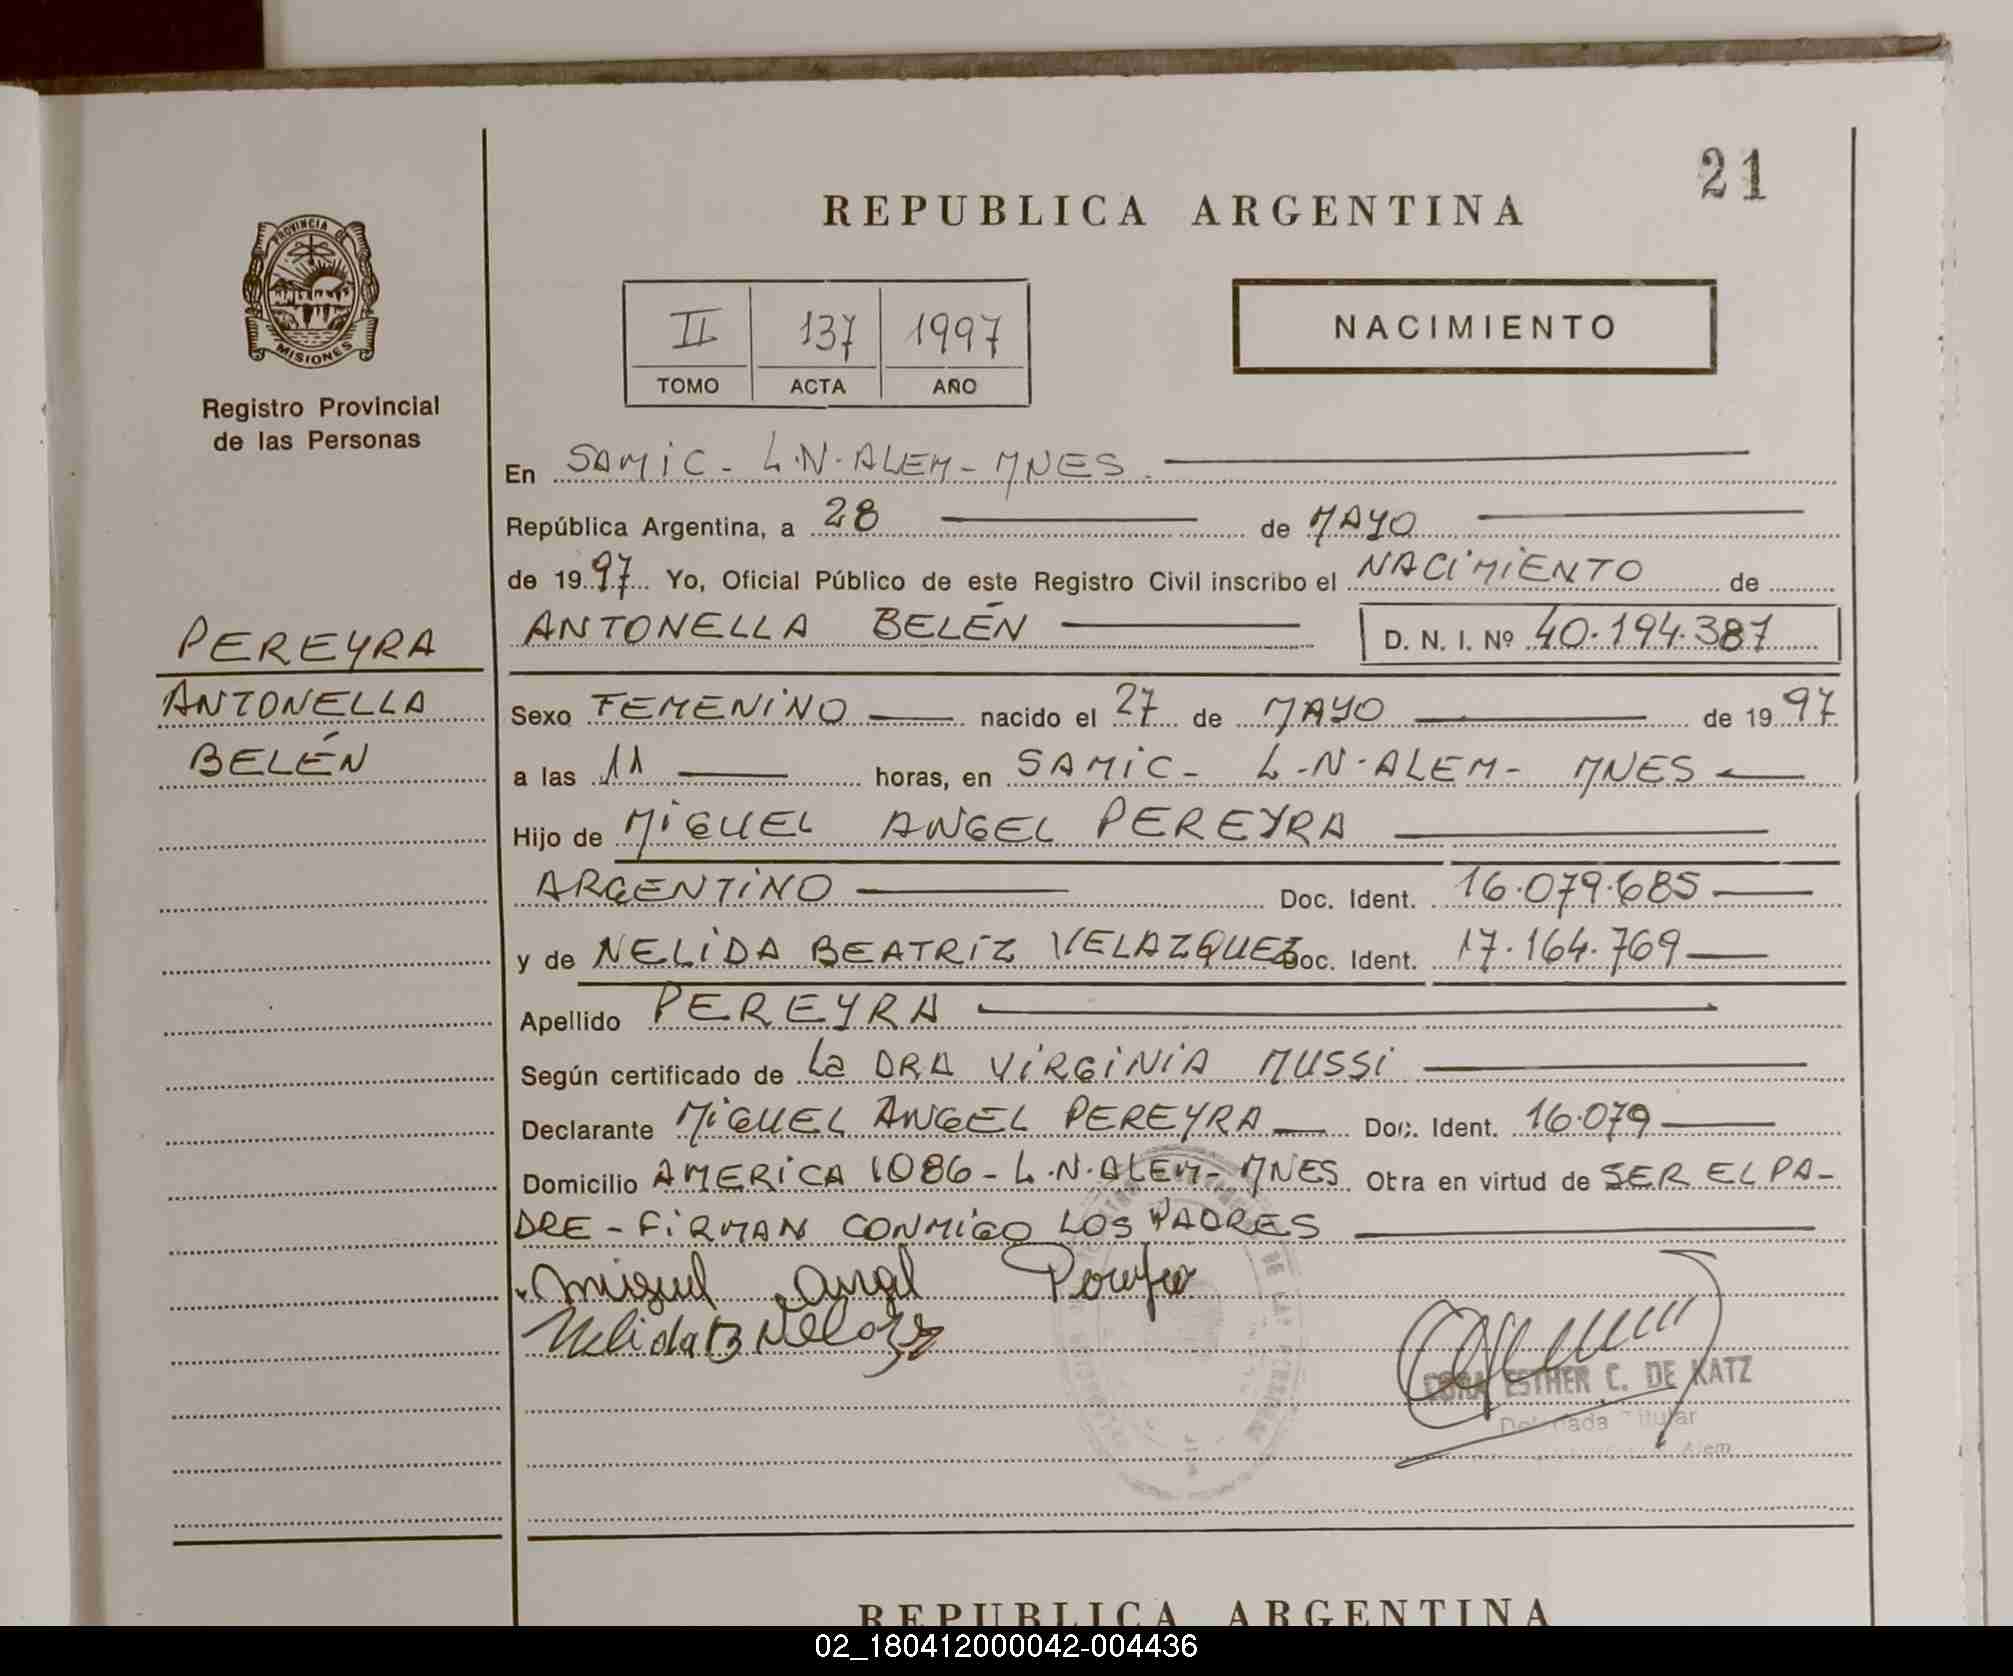 21
REPUBLICA ARGENTINA
PROVINCIA DE
MISIONES
Registro Provincial
de las Personas
II 137 1997
TOMO ACTA AÑO
NACIMIENTO
En SAMIC - L.N. ALEM - MNES.
República Argentina, a 28 de MAYO
de 1997 Yo, Oficial Público de este Registro Civil inscribo el NACIMIENTO de
ANTONELLA BELÉN D. N. I. Nº 40.194.387
PEREYRA
ANTONELLA
BELÉN
Sexo FEMENINO nacido el 27 de MAYO de 1997
a las 11 horas, en SAMIC - L.N. ALEM - MNES
Hijo de MIGUEL ANGEL PEREYRA
ARGENTINO Doc. Ident. 16.079.685
y de NELIDA BEATRIZ VELAZQUEZ Doc. Ident. 17.164.769
Apellido PEREYRA
Según certificado de La DRA VIRGINIA MUSSI
Declarante MIGUEL ANGEL PEREYRA Doc. Ident. 16.079
Domicilio AMERICA 1086 - L.N. ALEM - MNES Otra en virtud de SER EL PA-
DRE - FIRMAN CONMIGO LOS PADRES
Miguel Angel
Nelida B
ESTHER C. DE KATZ
Delegada Titular
Alem
REPUBLICA ARGENTINA
02_180412000042-004436